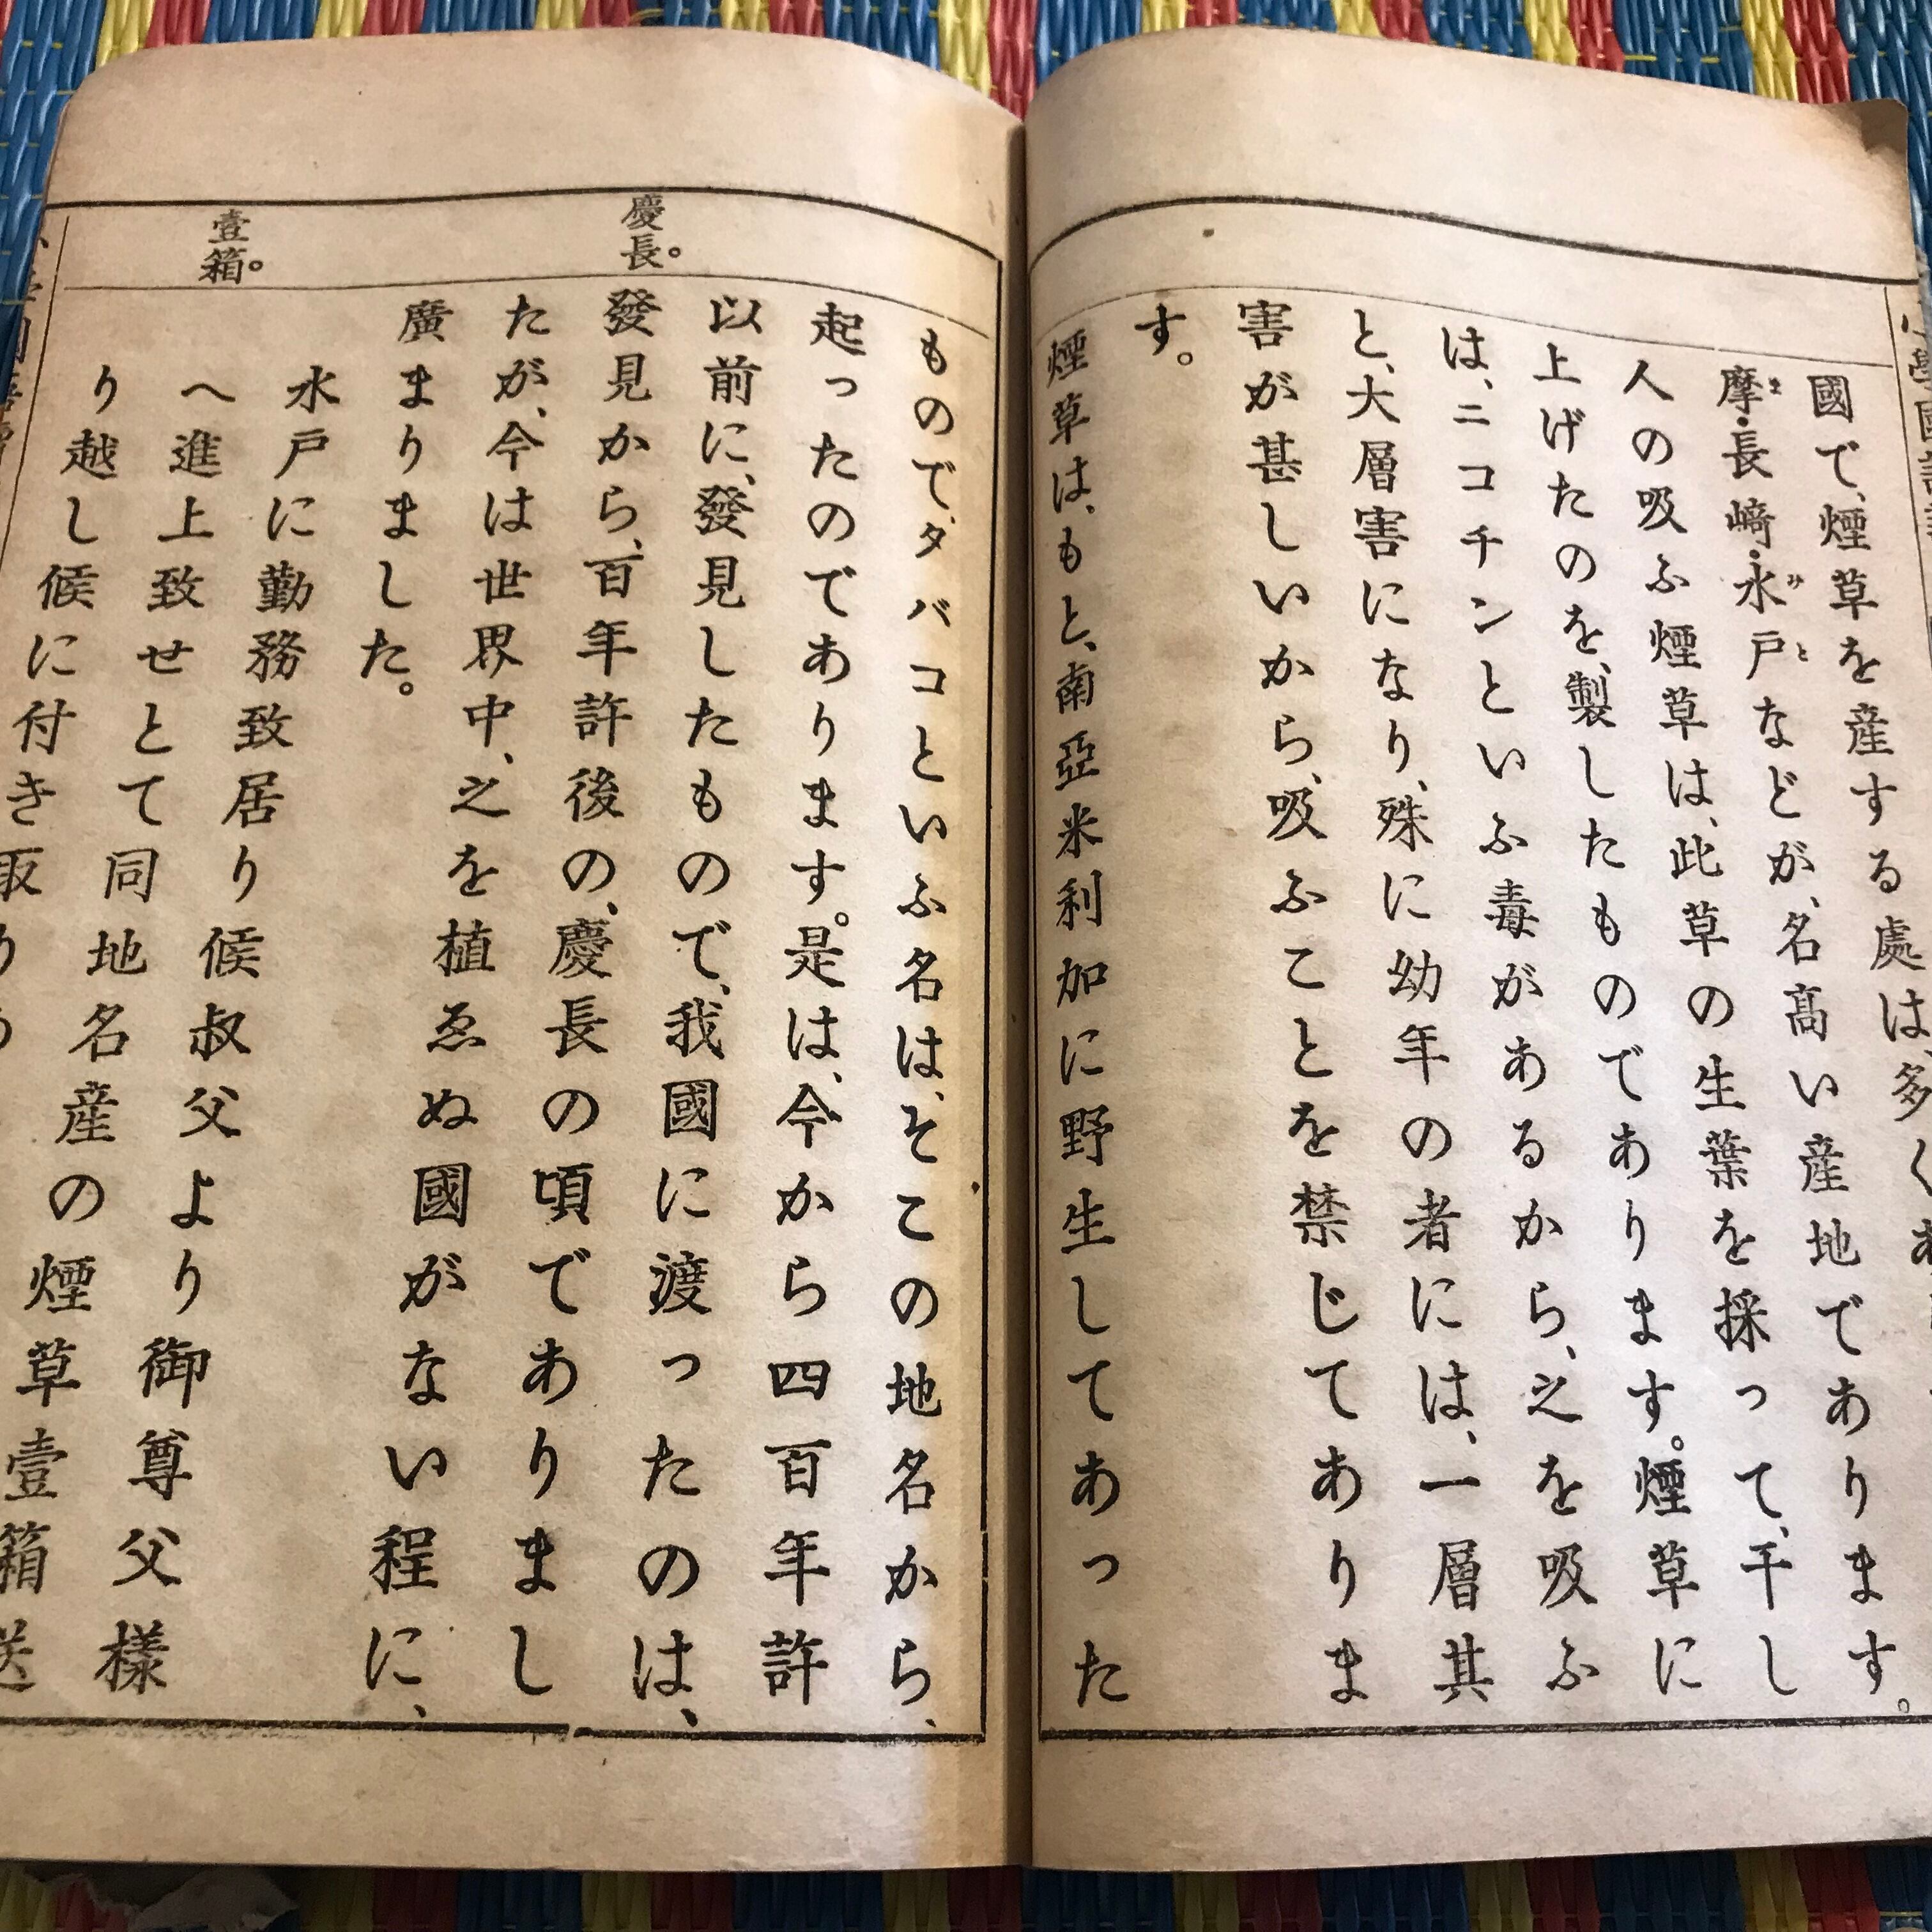 國で、煙草を産する處は、多く
摩・長崎・水戸などが、名高い産地であります。
人の吸ふ煙草は、此草の生葉を採って、干し
上げたのを、製したものであります。煙草に
は、ニコチンといふ毒があるから、之を吸ふ
と、大層害になり、殊に幼年の者には、一層其
害が甚しいから、吸ふことを禁じてありま
す。
煙草は、もと、南亞米利加に野生してあった
慶長。
壹箱。
もので、タバコといふ名は、そこの地名から、
起ったのであります。是は、今から四百年許
以前に、發見したもので、我國に渡ったのは、
發見から、百年許後の、慶長の頃でありまし
たが、今は世界中、之を植ゑぬ國がない程に、
廣まりました。
水戸に勤務致居り候叔父より御尊父樣
へ進上致せとて同地名産の煙草壹箱送
り越し候に付き